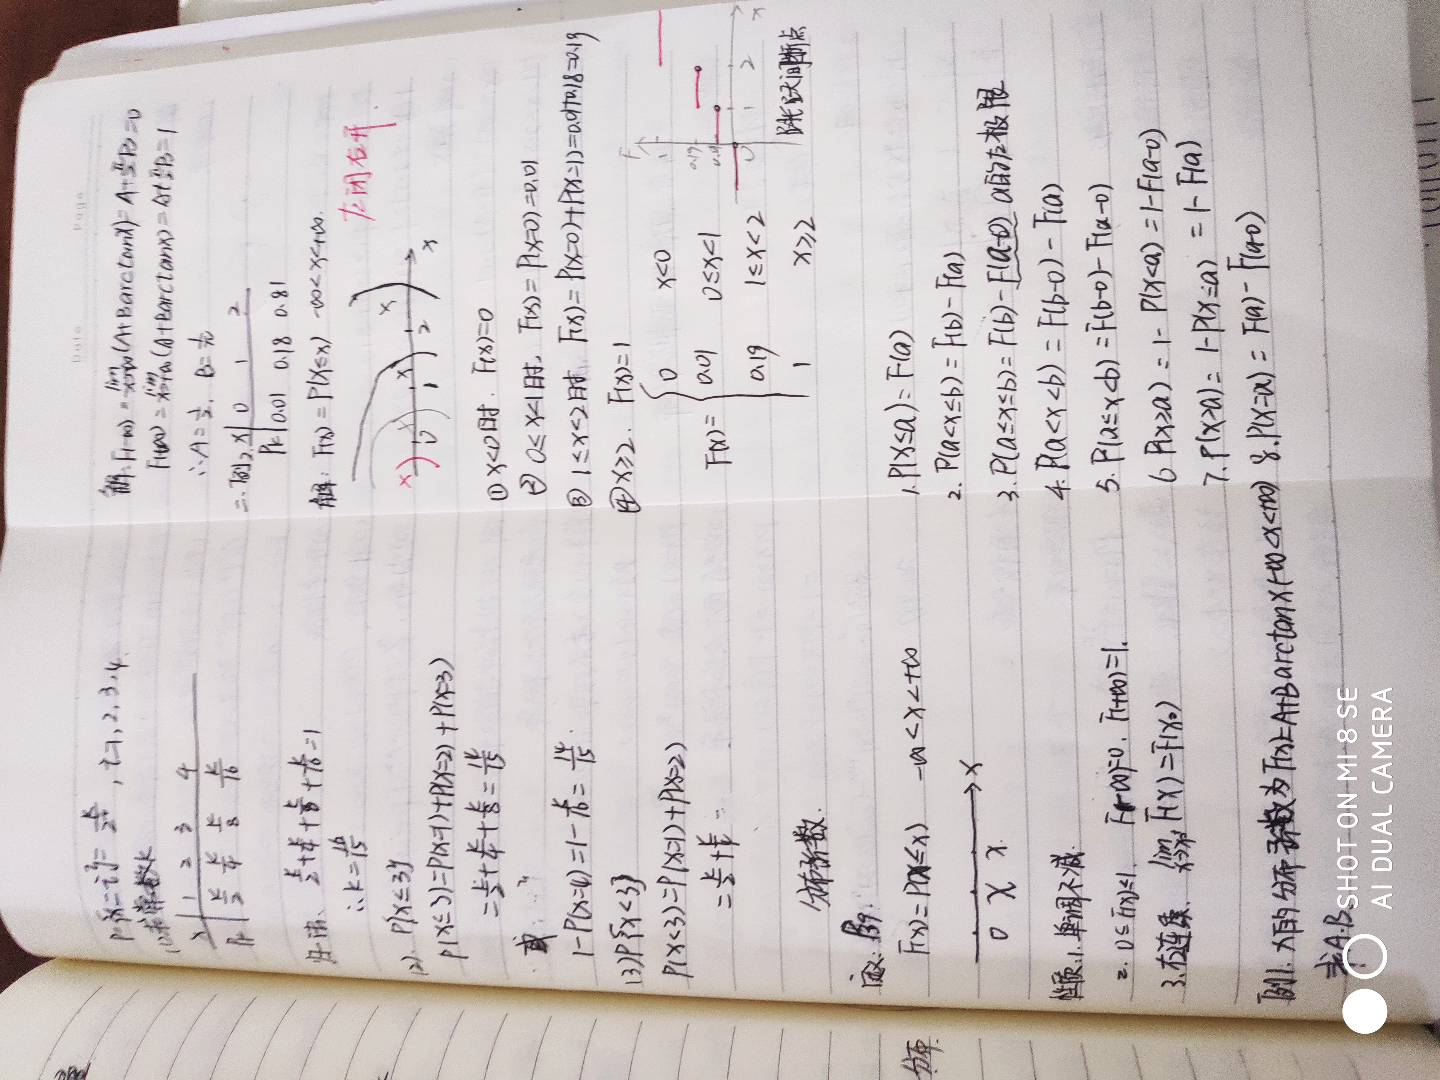 P{X=i}=k/2^i , i=1, 2, 3, 4.
(1)求常数k
X 1 2 3 4
Pk k/2 k/4 k/8 k/16
k/2+k/4+k/8+k/16=1
∴k=16/15
(2). P{X≤3}
P(X≤3)=P(X=1)+P(X=2)+P(X=3)
=k/2+k/4+k/8=14/15
或
1-P(X=4)=1-k/16=14/15.
(3)P{X<3}
P(X<3)=P(X=1)+P(X=2)
=k/2+k/4=
分布函数.
定义: P39.
F(x)=P(X≤x) -∞<x<+∞
X
0 X x.
性质.1.单调不减.
2. 0≤F(x)≤1. F(-∞)=0. F(+∞)=1.
3.右连续. lim F(x)=F(x0)
例1. X的分布函数为F(x)=A+Barctanx(-∞<x<+∞)
求A.B.
SHOT ON MI 8 SE
AI DUAL CAMERA
Date Page
解:F(-∞)=lim(A+Barctanx)=A+π/2B=0
F(+∞)=lim(A+Barctanx)=A+π/2B=1
∴A=1/2. B=1/π
二.例2. X 0 1 2
Pk 0.01 0.18 0.81
解: F(x)=P(X≤x) -∞<x<+∞.
左闭右开.
x x x x
0 1 2 x
① x<0时. F(x)=0
② 0≤x<1时. F(x)=P(X=0)=0.01
③ 1≤x<2时 F(x)=P(X=0)+P(X=1)=0.01+0.18=0.19
④x≥2. F(x)=1
F(x)=
0 x<0
0.01 0≤x<1
0.19 1≤x<2
1 x≥2
F
1
0.19
0.01
0 1 2 x
跳跃间断点
1.P(X≤a)=F(a)
2. P(a<x≤b)=F(b)-F(a)
3. P(a≤x≤b)=F(b)-F(a-0) a的左极限
4. P(a<x<b)=F(b-0)-F(a)
5. P(a≤x<b)=F(b-0)-F(a-0)
6 P(x≥a)=1-P(x<a)=1-F(a-0)
7. P(x>a)=1-P(x≤a)=1-F(a)
8.P(x=a)=F(a)-F(a-0)
分布